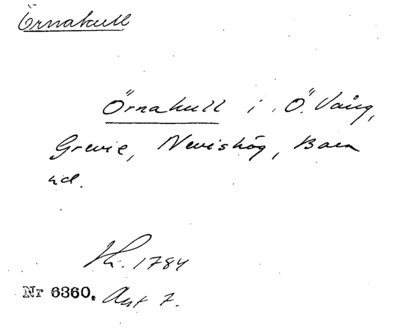 Örnakull
Örnakull i Ö. Vång,
Grevie, Nevishög, Bara
hd.
1784
Nr 6360. Akt 7.